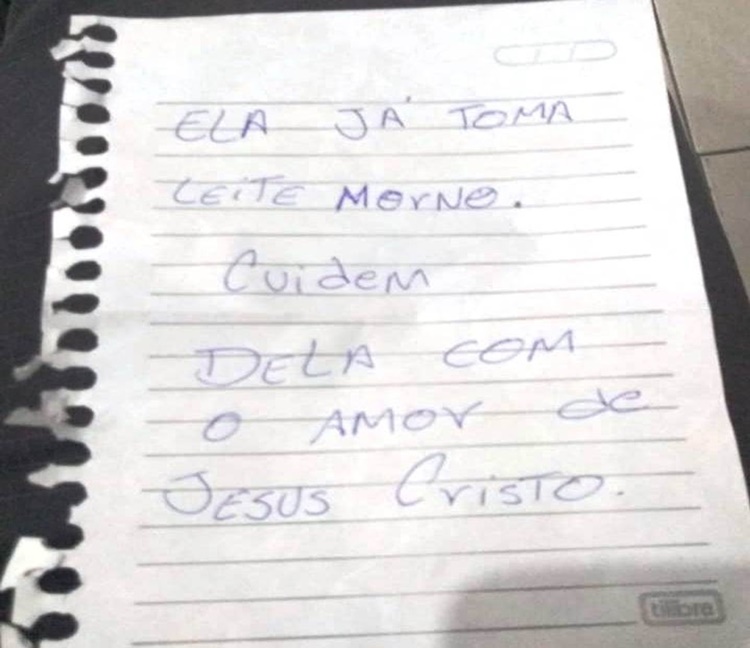 ELA JÁ TOMA
LEITE MORNO.
Cuidem
DELA COM
O AMOR de
JESUS CRISTO.
tilibra